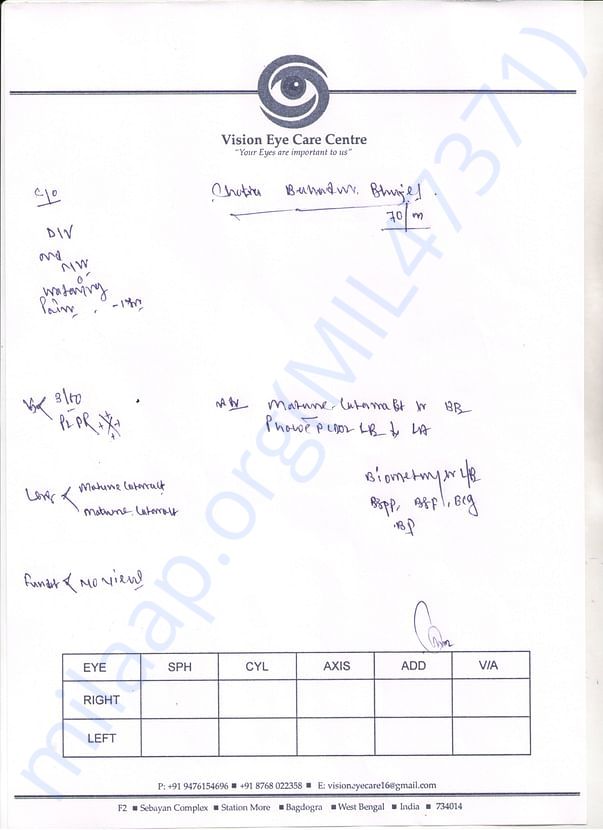 Vision Eye Care Centre
"Your Eyes are important to us"
C/O
Bhujel.
70/m
DIV
watering
Pain - 1
3/60
PL PR +
Mature Cataract BE
Phaco PCIOL LE LA
Lens Mature Cataract
Mature Cataract
Biometry LE
BSPP, BSF, ECG
BP
Fundus No view
EYE SPH CYL AXIS ADD V/A
RIGHT
LEFT
P: +91 9476154696 ■ +91 8768 022358 ■ E: visioneyecare16@gmail.com
F2 ■ Sebayan Complex ■ Station More ■ Bagdogra ■ West Bengal ■ India ■ 734014
milaap.org(MIL47371)